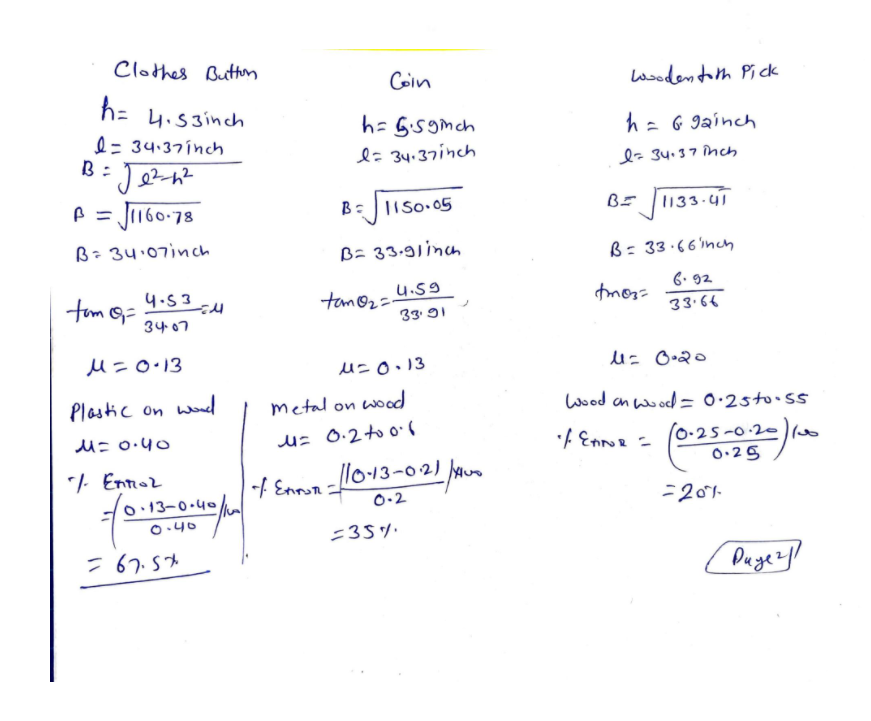 Clothes Button
h = 4.53inch
l = 34.37inch
B = √l²-h²
B = √1160.78
B = 34.07inch
tan θ₁ = 4.53/34.07 = μ
μ = 0.13
Plastic on wood
μ = 0.40
% Error
= |0.13-0.40/0.40|100
= 67.5%
Coin
h = 5.59inch
l = 34.37inch
B = √1150.05
B = 33.91inch
tan θ₂ = 4.59/33.91
μ = 0.13
Metal on wood
μ = 0.2 to 0.6
% Error = |(0.13-0.2)/0.2|×100
= 35%
Wooden toth Pick
h = 6.92inch
l = 34.37inch
B = √1133.41
B = 33.66inch
tan θ₃ = 6.92/33.66
μ = 0.20
Wood on wood = 0.25 to .55
% Error = (0.25-0.20/0.25)100
= 20%
Page 2